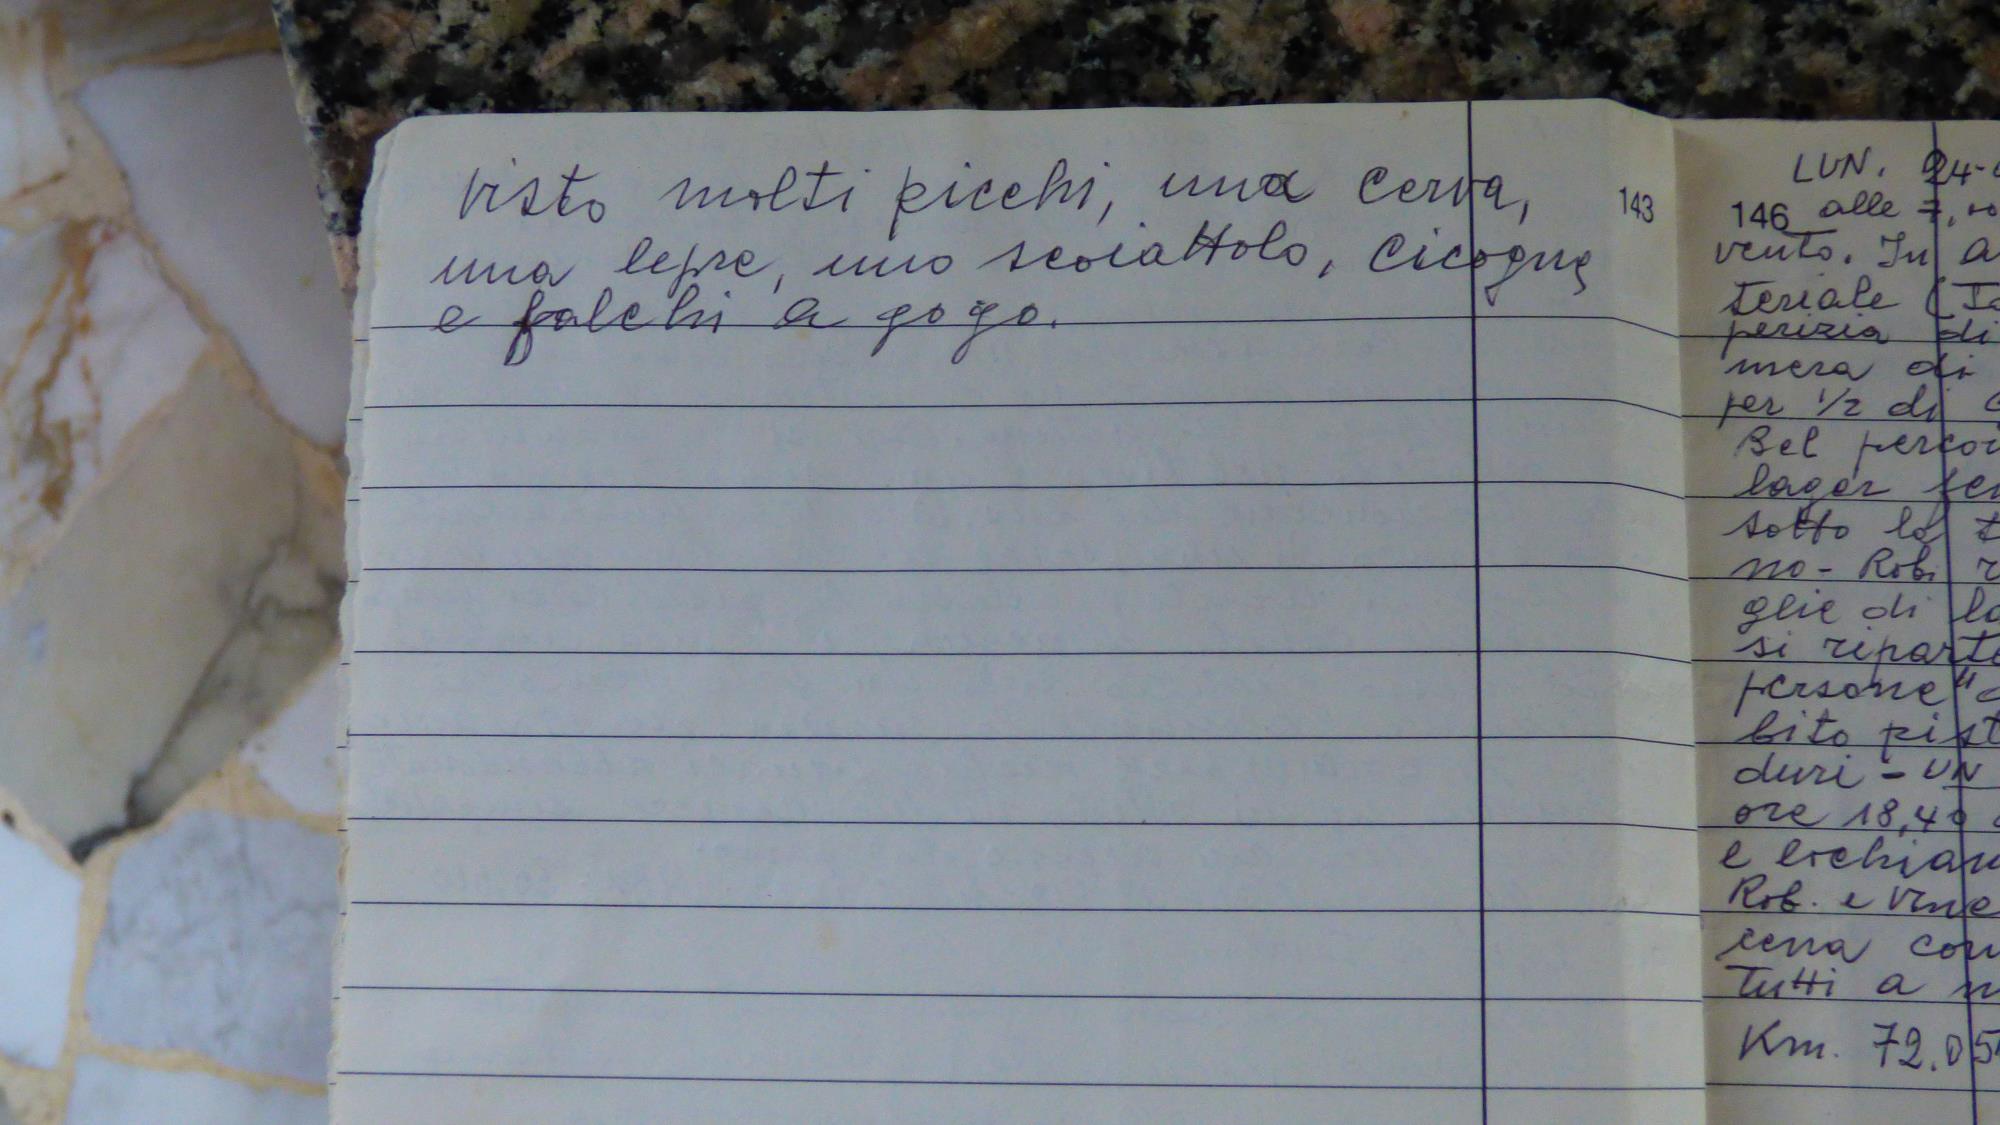 visto molti picchi, una cerva,
una lepre, uno scoiattolo, cicogne
e falchi a gogo.
143
LUN. 24-
146 alle 7,
vento. In
teriale (
perizia di
mera di
per 1/2 di
Bel
lager
sotto la
no - Robi
glie di
si riparte
persone "
bito
duri - UN
ore 18,40
e
Rob. e
cena con
tutti a
Km. 72.05